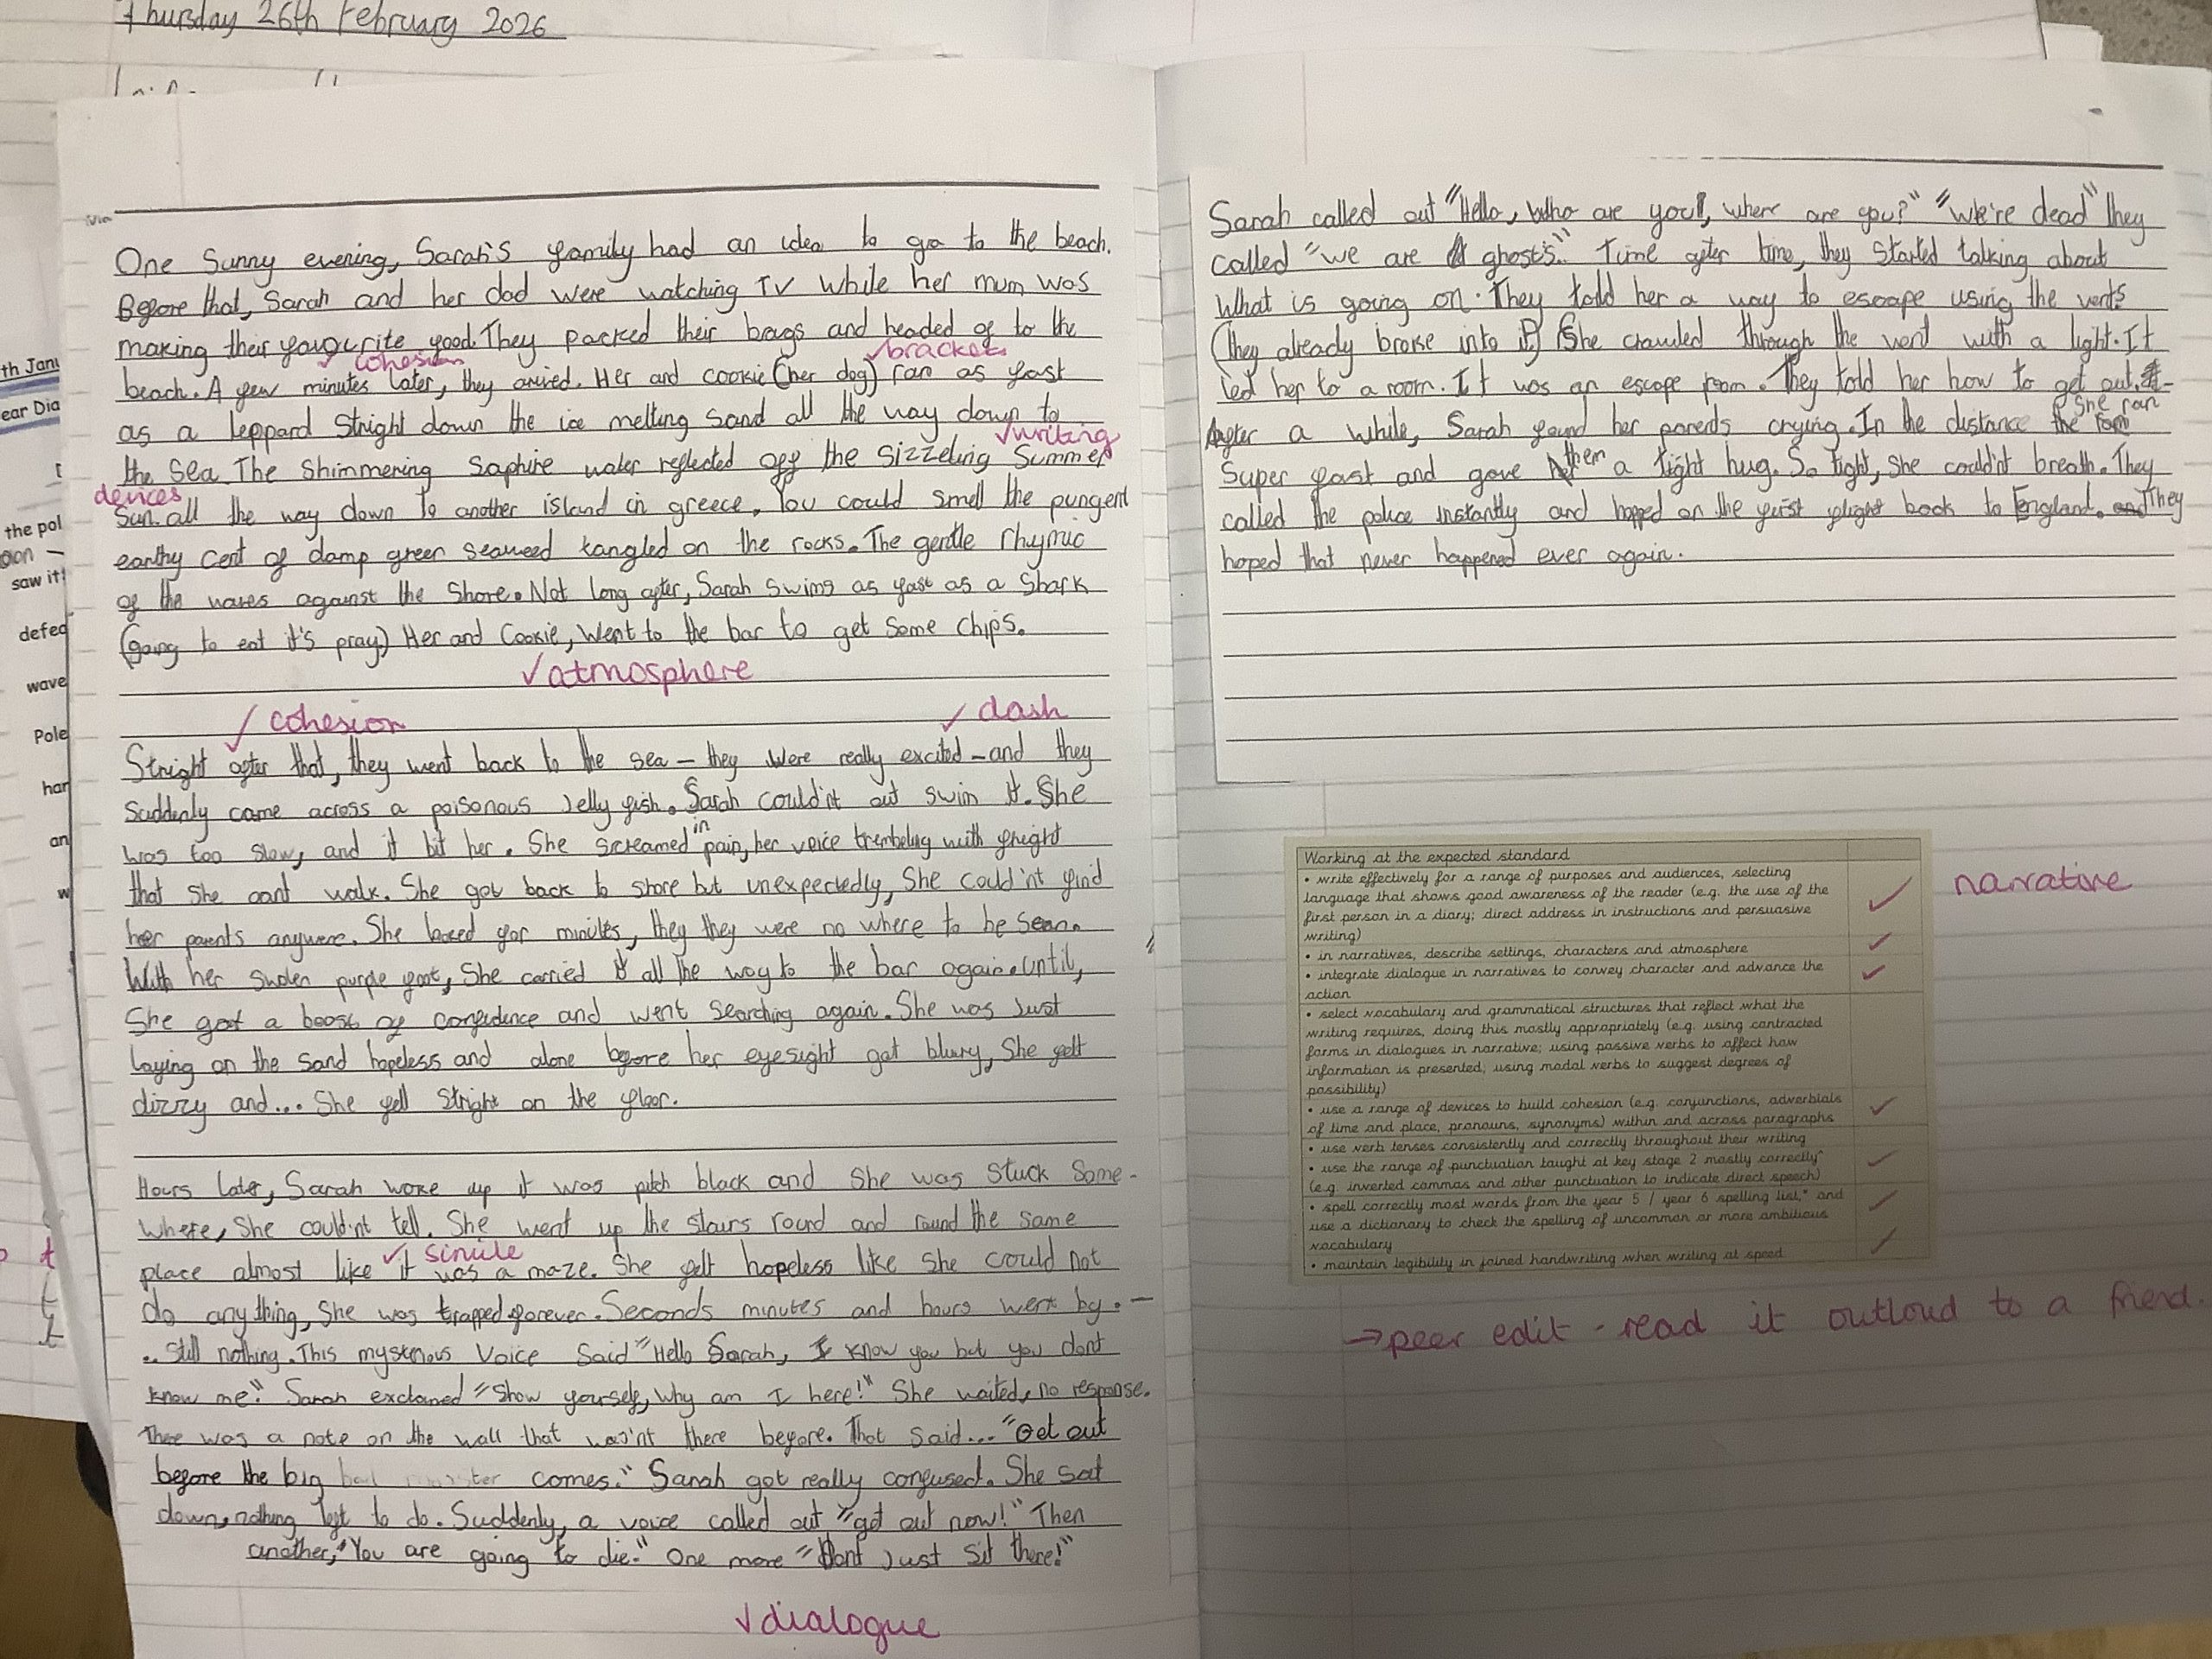 Thursday 26th February 2026
th Janu
ear Dia
the pol
saw it!
defea
wave
Pole
har
an
w
One Sunny evening, Sarah's family had an idea to go to the beach.
Before that, Sarah and her dad were watching TV while her mum was
making their favourite food. They packed their bags and headed of to the
cohesion
brackets
beach. A few minutes later, they arrived. Her and cookie (her dog) ran as fast
as a leppard Stright down the ice melting sand all the way down to
writing
the sea. The Shimmering Saphire water reflected off the sizzeling Summer
devices
Sun. all the way down to another island in greece. You could smell the pungent
earthy cent of damp green seaweed tangled on the rocks. The gentle rhymic
of the waves against the Shore. Not long after, Sarah swims as fast as a Shark
(going to eat it's pray) Her and Cookie, Went to the bar to get Some Chips.
✓atmosphere
✓ cohesion
✓ dash
Stright after that, they went back to the sea – they were really excited – and they
Suddenly came across a poisonous Jelly fish. Sarah could'nt out swim it. She
was too slow, and it bit her. She screamed in pain, her voice trembeling with fright
that she cant walk. She got back to shore but unexpectedly, She could'nt find
her parents anywere. She looked for minutes, they they were no where to be Seen.
With her Swolen purple foot, She carried it all the way to the bar again. Until,
She got a boost of confidence and went Searching again. She was Just
laying on the sand hopeless and alone before her eyesight got blurry, She felt
dizzy and... She fell Stright on the floor.
Hours later, Sarah woke up it was pitch black and She was Stuck Some-
Where, She could'nt tell. She went up the stairs round and round the same
✓ simile
place almost like it was a maze. She felt hopeless like She could not
do anything, She was trapped forever. Seconds minutes and hours went by. –
.. Still nothing. This mysterious Voice Said "Hello Sarah, I know you but you dont
know me". Sarah exclaimed "Show yourself, why am I here!" She waited, no response.
There was a note on the wall that was'nt there before. That Said... "Get out
before the big comes." Sarah got really confused. She sat
down, nothing left to do. Suddenly, a voice called out "get out now!" Then
another, "You are going to die." One more "Dont Just Sit there!"
✓dialogue
Sarah called out "Hello, Who are you?, where are you?" "We're dead" they
called "we are ghosts". Time after time, they started talking about
What is going on. They told her a way to escape using the vents
(they already broke into it) She crawled through the vent with a light. It
led her to a room. It was an escape room. They told her how to get out.
After a while, Sarah found her parents crying. In the distance She ran
Super fast and gave them a tight hug. So tight, She couldn't breath. They
called the police instantly and hopped on the first flight back to England. They
hoped that never happened ever again.
Working at the expected standard
• write effectively for a range of purposes and audiences, selecting
language that shows good awareness of the reader (e.g. the use of the
first person in a diary; direct address in instructions and persuasive
writing)
narrative
• in narratives, describe settings, characters and atmosphere
• integrate dialogue in narratives to convey character and advance the
action
• select vocabulary and grammatical structures that reflect what the
writing requires, doing this mostly appropriately (e.g. using contracted
forms in dialogues in narrative; using passive verbs to affect how
information is presented; using modal verbs to suggest degrees of
possibility)
• use a range of devices to build cohesion (e.g. conjunctions, adverbials
of time and place, pronouns, synonyms) within and across paragraphs
• use verb tenses consistently and correctly throughout their writing
• use the range of punctuation taught at key stage 2 mostly correctly^
(e.g. inverted commas and other punctuation to indicate direct speech)
• spell correctly most words from the year 5 / year 6 spelling list,* and
use a dictionary to check the spelling of uncommon or more ambitious
vocabulary
• maintain legibility in joined handwriting when writing at speed
→peer edit - read it outloud to a friend.